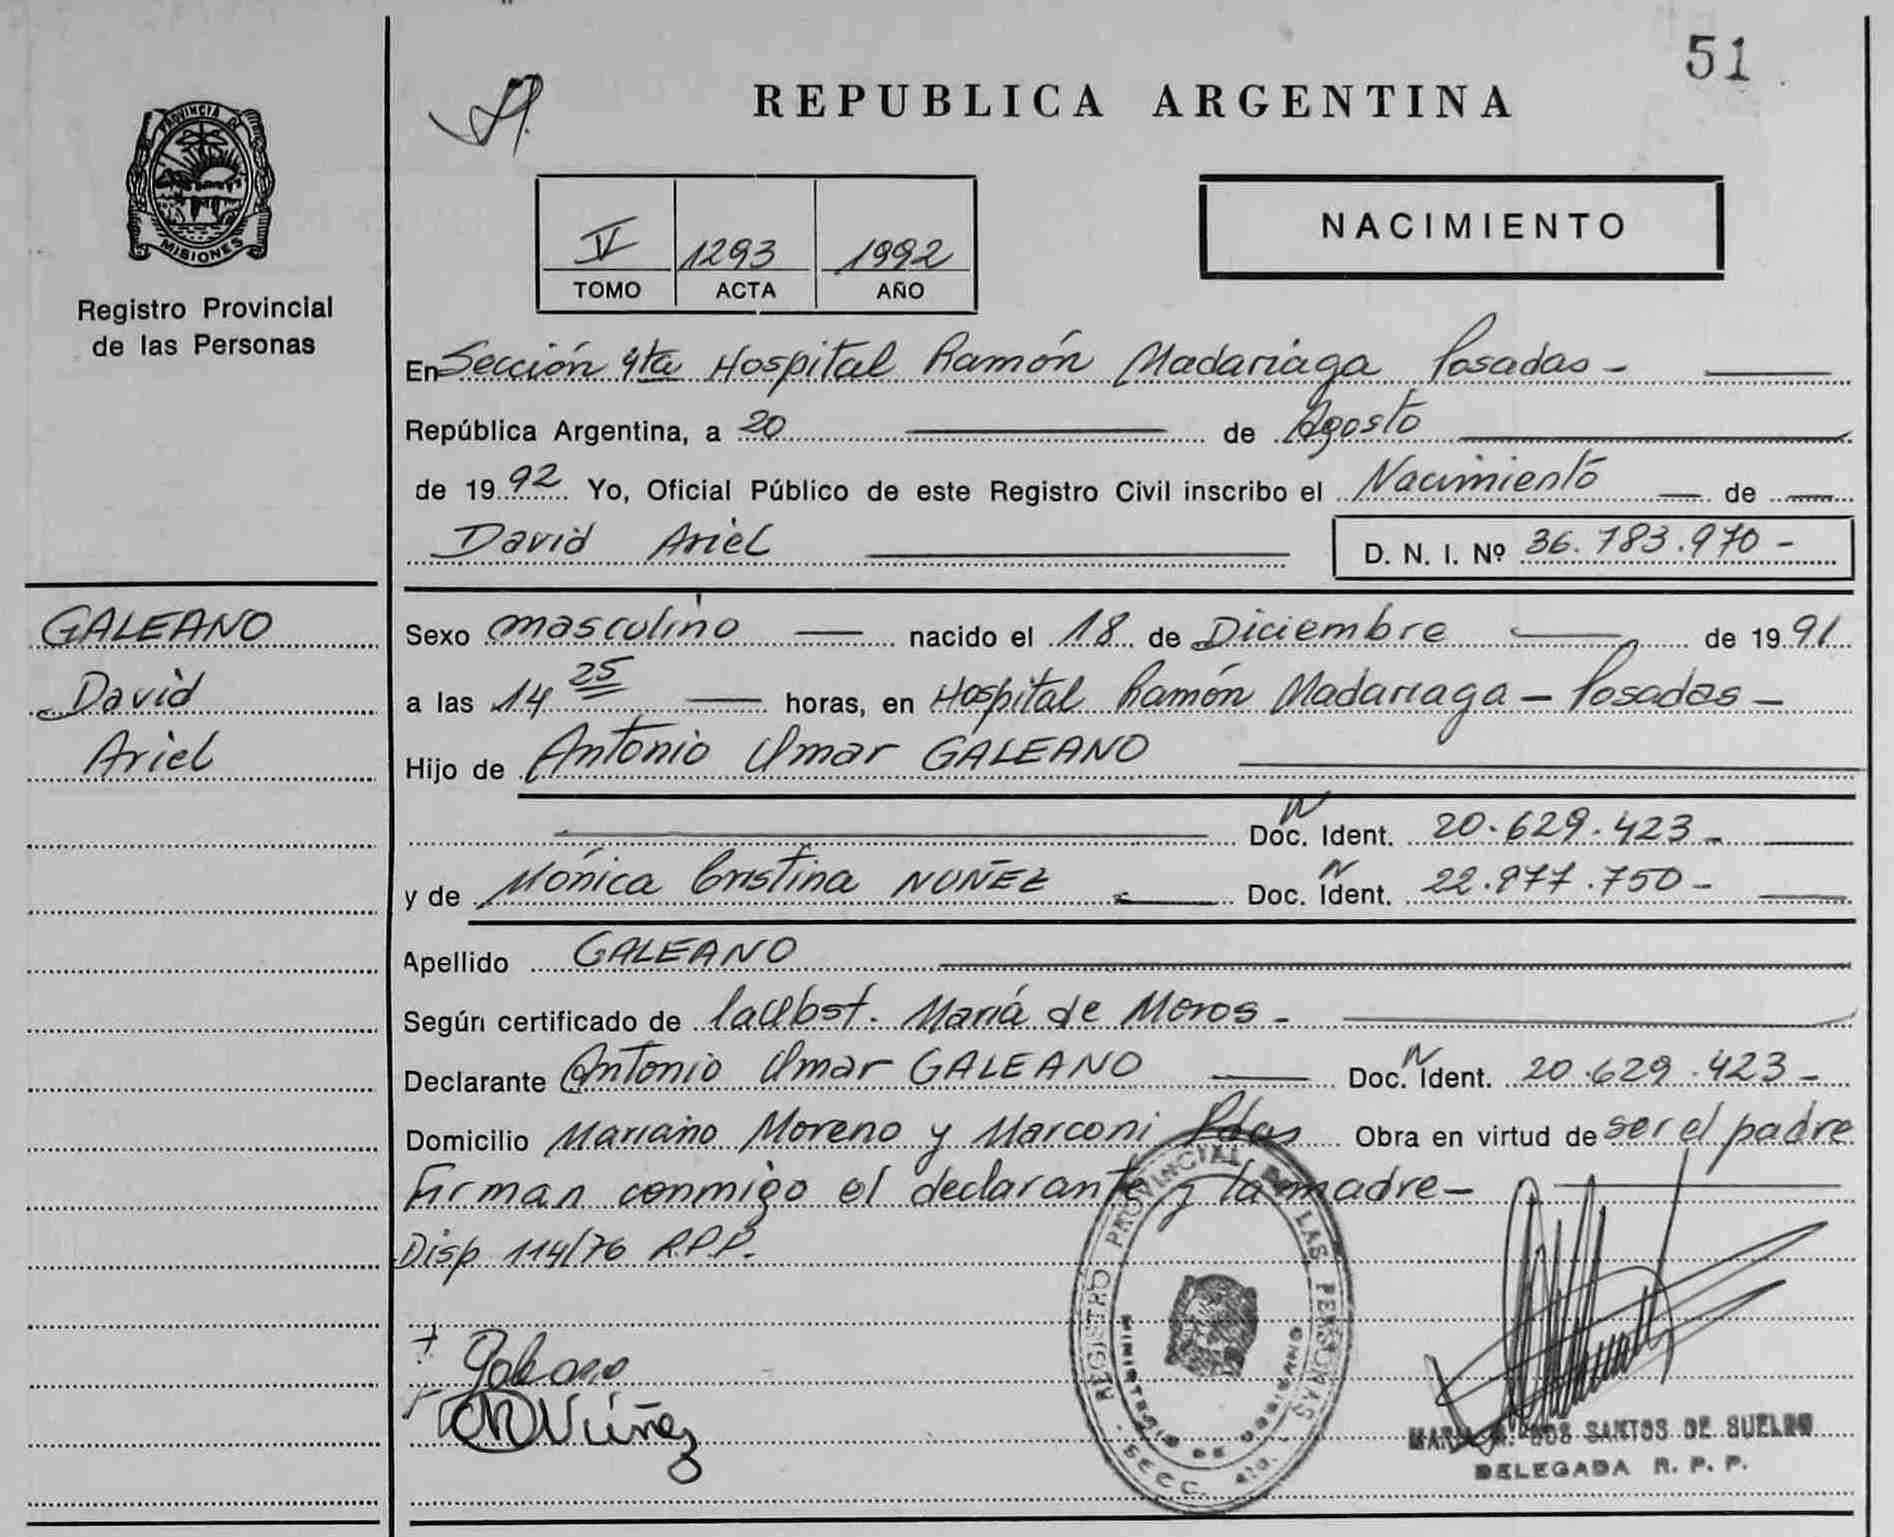 51
REPUBLICA ARGENTINA
PROVINCIA DE
MISIONES
Registro Provincial
de las Personas
NACIMIENTO
V 1293 1992
TOMO ACTA AÑO
En Sección 4ta Hospital Ramón Madariaga Posadas -
República Argentina, a 20 de Agosto
de 1992 Yo, Oficial Público de este Registro Civil inscribo el Nacimiento de
David Ariel D. N. I. Nº 36.783.970 -
GALEANO
David
Ariel
Sexo masculino nacido el 18 de Diciembre de 1991
a las 14 25 horas, en Hospital Ramón Madariaga - Posadas -
Hijo de Antonio Omar GALEANO
Doc. Ident. 20.629.423 -
y de Mónica Cristina NUÑEZ Doc. Ident. 22.977.750 -
Apellido GALEANO
Según certificado de la Obst. María de Moros -
Declarante Antonio Omar GALEANO Doc. Ident. 20.629.423 -
Domicilio Mariano Moreno y Marconi Pdas Obra en virtud de ser el padre
Firman conmigo el declarante y la madre -
Disp 114/76 R.P.P.
Galeano
Núñez
REGISTRO PROVINCIAL DE LAS PERSONAS
MINISTERIO DE GOBIERNO
SECC. 4ta.
DOS SANTOS DE SUELDO
DELEGADA R. P. P.